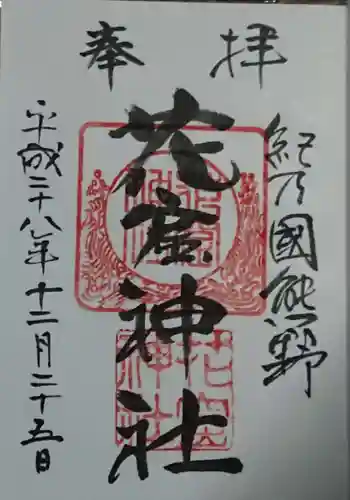 奉拝
紀乃國熊野
花窟神社
平成二十八年十二月二十五日